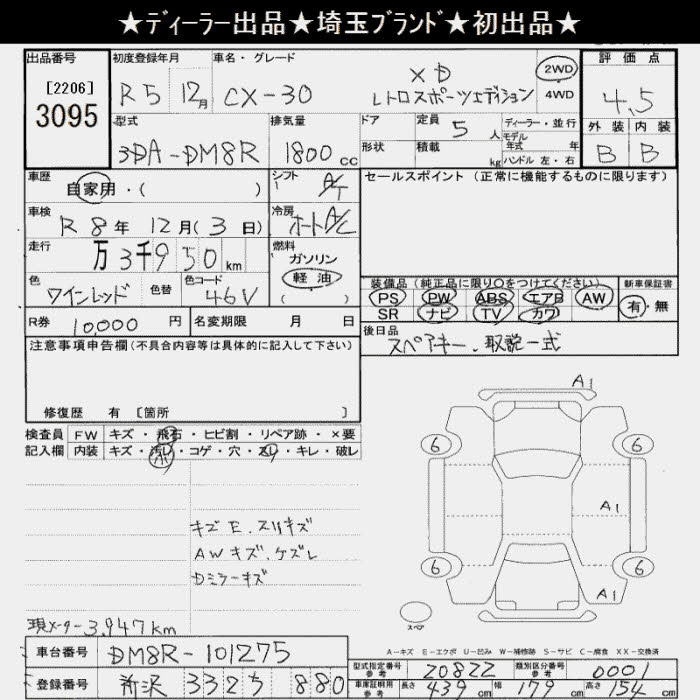 ★ディーラー出品★埼玉ブランド★初出品★
出品番号
[2206]
3095
初度登録年月
R5 12月
車名・グレード
XD
CX-30 レトロスポーツエディション
2WD
4WD
評価点
4.5
外装 内装
B B
型式
3DA-DM8R
排気量
1800cc
ドア
形状
定員 5人
積載 kg
ディーラー・並行
モデル年式 年
ハンドル 左・右
車歴
自家用・( )
シフト
A/T
車検
R8年 12月(3日)
冷房
オートA/C
走行
万3千950km
燃料
ガソリン
軽油
( )
色
ワインレッド
色替
色コード
46V
セールスポイント (正常に機能するものに限ります)
装備品 (純正品に限り○をつけてください)
PS PW ABS エアB AW
SR ナビ TV カワ
新車保証書
有・無
R券 10,000円
名変期限 月 日
後日品
スペアキー、取説一式
注意事項申告欄(不具合内容等は具体的に記入して下さい)
修復歴 有 〔箇所 〕
検査員記入欄
FW キズ・飛石・ヒビ割・リペア跡・×要
内装 キズ・汚レ・コゲ・穴・スレ・キレ・破レ
A1
キズE、スリキズ
AWキズ、ケズレ
Dミラーキズ
A1
6
6
A1
6
6
A1
スペア
現メーター3,947km
A-キズ E-エクボ U-凹み W-補修跡 S-サビ C-腐食 XX-交換済
車台番号 DM8R-101275
登録番号 所沢 332 880
型式指定番号 参考 20822
類別区分番号 参考 0001
車庫証明用 参考 長さ 439cm 幅 179cm 高さ 154cm